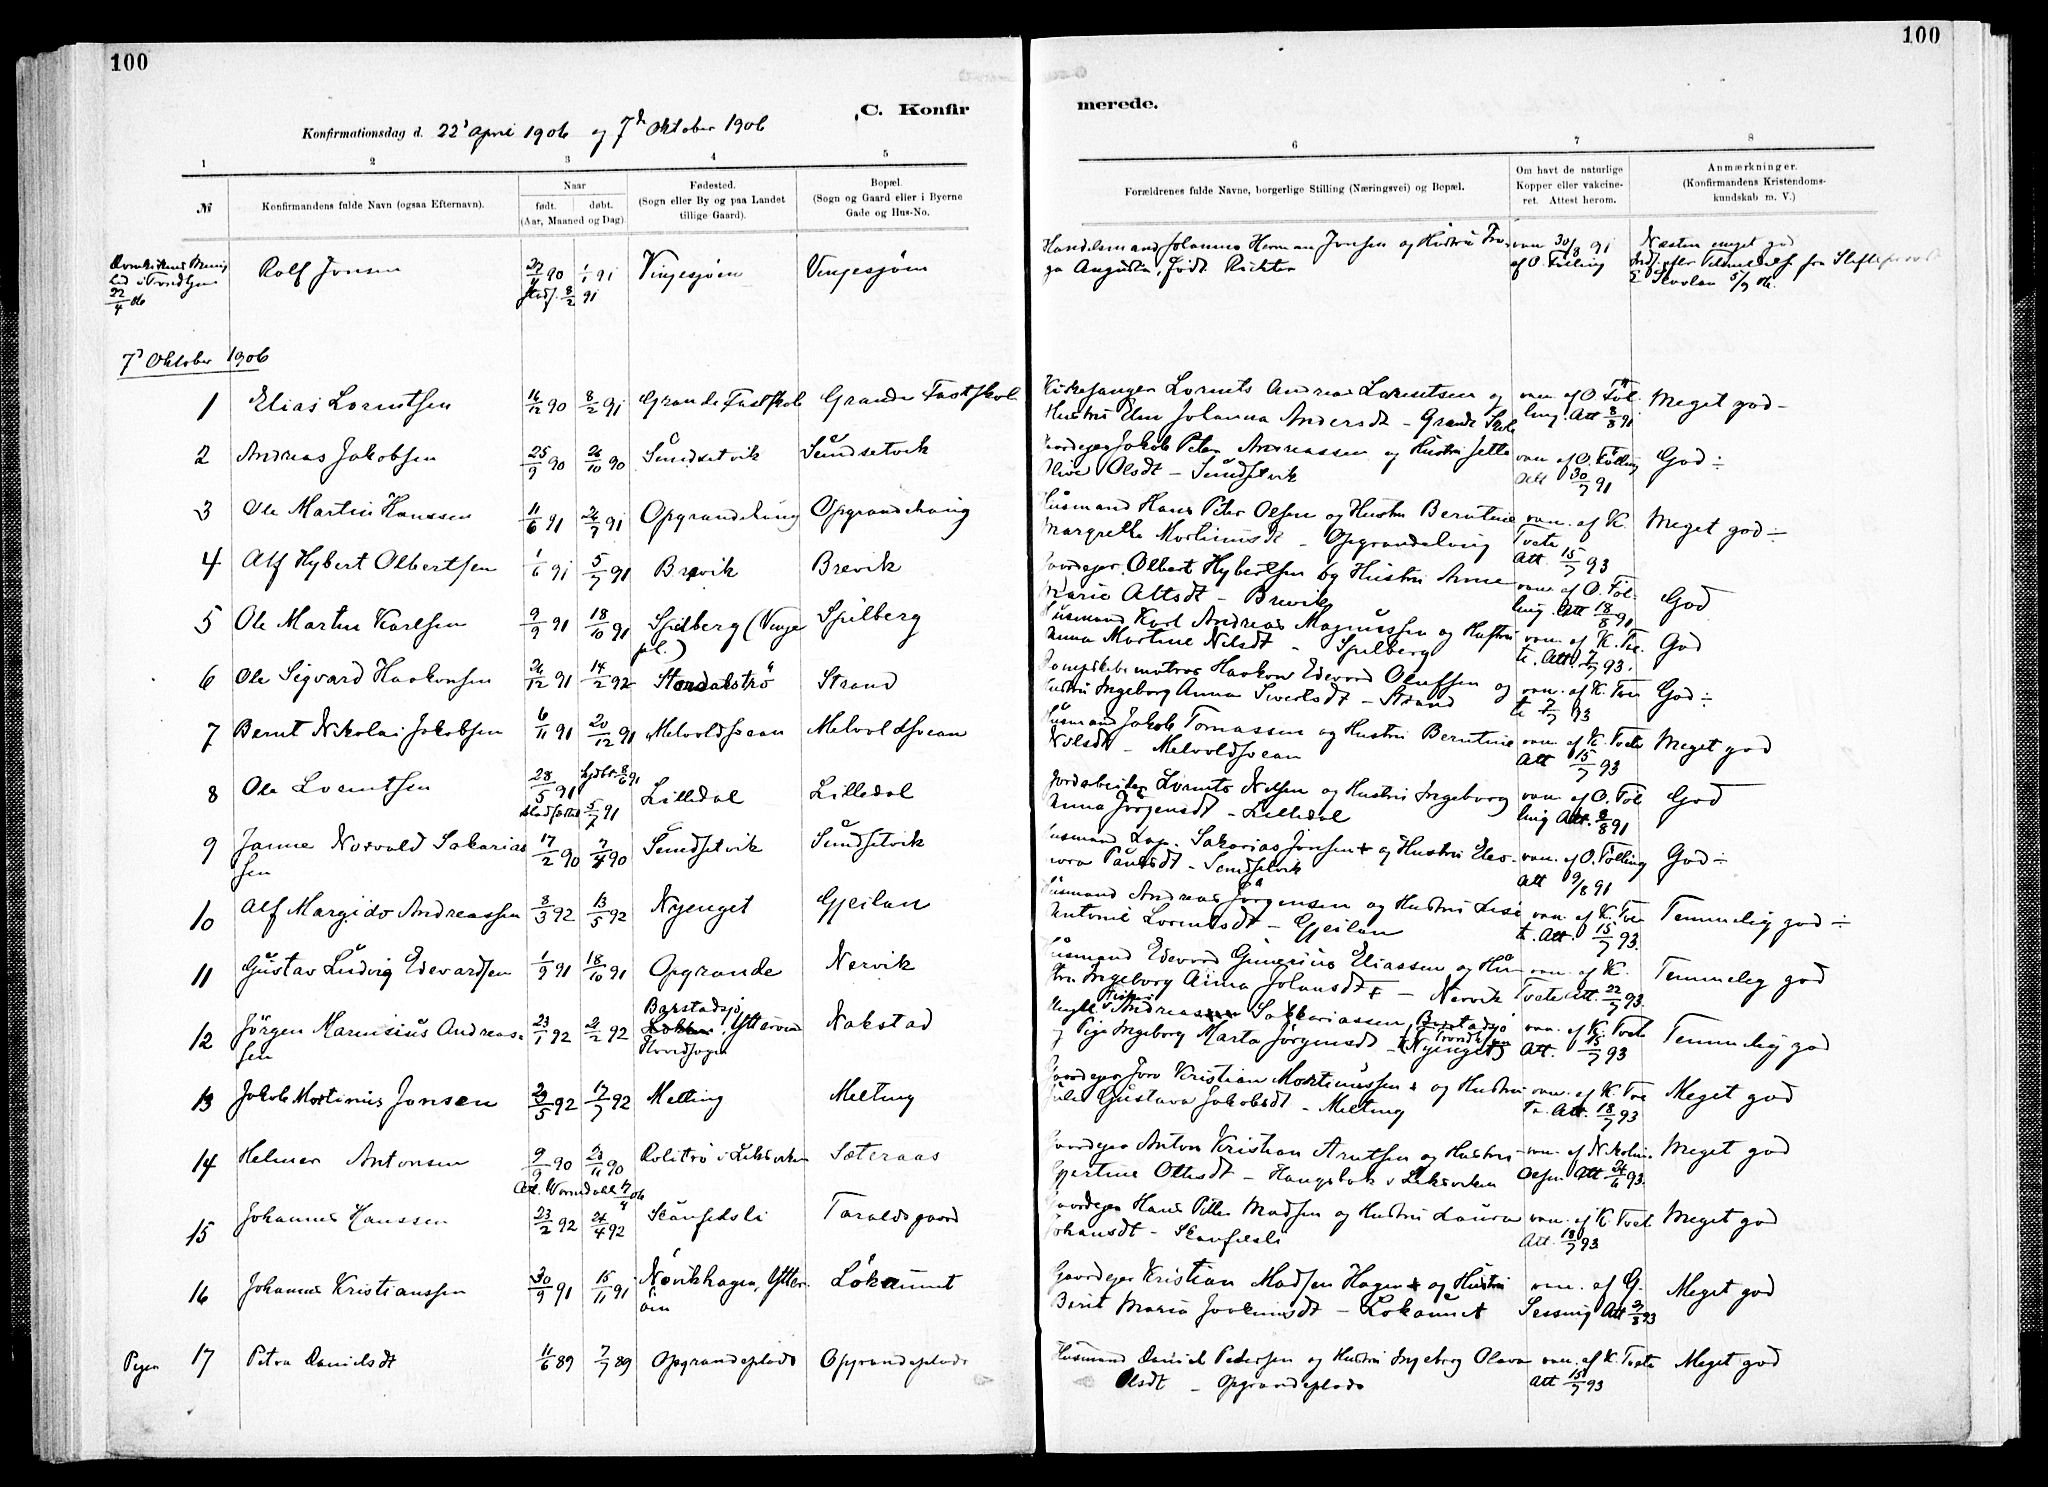 100
100
C. Konfir
merede.
Konfirmationsdag d. 22' April 1906 og 7de Oktober 1906
1 2 3 4 5 6 7 8
№
Konfirmandens fulde Navn (ogsaa Efternavn).
Naar
født. døbt.
(Aar, Maaned og Dag).
Fødested.
(Sogn eller By og paa Landet
tillige Gaard).
Bopæl.
(Sogn og Gaard eller i Byerne
Gade og Hus-No.
Forældrenes fulde Navne, borgerlige Stilling (Næringsvei) og Bopæl.
Om havt de naturlige
Kopper eller vakcine-
ret. Attest herom.
Anmærkninger.
(Konfirmandens Kristendoms-
kundskab m. V.)
22/4 06
Rolf Jensen 1/1 91 Vinjesjøen Vinjesjøen
8/2 91
Handelsmand Johannes Herman Jensen og Hustru
Augusta, født Richter
vac 30/8 91
af O. Følling
Næsten meget god
7' Oktober 1906
1 Elias Lorentsen 16/12 90 8/2 91 Grande Fastskole Grande Fastskol
Kirkesanger Lorents Andreas Lorentsen og
Hustru Elen Johanna Andersdt - Grande Skole
vac. af O. Föl-
ling. Att 8/8 91
Meget god -
2 Andreas Jakobsen 25/9 90 26/10 90 Sundsetvik Sundsetvik
Gaardeger Jakob Peter Andreassen og Hustru Jette
Olsdt - Sundsetvik
vac. af O. Fölling
Att 30/7 91
God ÷
3 Ole Martin Hanssen 11/6 91 26/7 91 Opgrandehaug Opgrandehaug
Husmand Hans Peter Olsen og Hustru Berntine
Margrethe Mortinusdt - Opgrandehaug
vac. af K.
Tvete
Att 15/7 93
Meget god ÷
4 Alf Hybert Olbertsen 1/6 91 5/7 91 Brevik Brevik
Gaardeger Olbert Hybertsen og Hustru Anne
Marie Altsdt - Brevik
vac. af O. Föl-
ling. Att 18/8 91
God
5 Ole Martin Karlsen 9/9 91 18/10 91 Spilberg (Vinje Spilberg
pl.)
Husmand Karl Andreas Magnussen og Hustru
Anna Martine Nilsdt - Spilberg
vac. af K. Tve-
te. Att. 2/7 93.
God
6 Ole Sigvard Haakonsen 26/12 91 14/2 92 Stordalströ Strand
Haakon Edevard Olufsen og
Hustru Ingeborg Anna Sivertsdt - Strand
vac. af K. Tve
te 2/7 93
God ÷
7 Bernt Nikolai Jakobsen 6/11 91 20/12 91 Melvoldsvean Melvoldsvean
Husmand Jakob Tomassen og Hustru Berntine
Nilsdt - Melvoldsvean
vac. af K. Tvete
Att 15/7 93
Meget god
8 Ole Lorentsen 28/5 91 Hjdbt. 8/6 91 Lilledal Lilledal
Stadfæstet 5/7 91
Jordarbeider Lorents Nilsen og Hustru Ingeborg
Anna Jörgensdt - Lilledal
vac. af O. Föl
ling Att. 8/8 91
God
9 Janne Norvald Sakarias 17/2 90 7/4 90 Sundsetvik Sundsetvik
sen
Husmand Lap. Sakarias Jonsen + og Hustru Eleo-
nora Paulsdt - Sundsetvik
vac. af O. Fölling
Att 9/8 91
God ÷
10 Alf Margido Andreassen 8/3 92 13/5 92 Nyenget Gjeilan
Husmand Andreas Jörgensen og Hustru Lise
Antonie Lorentsdt - Gjeilan
vac. af K. Tve
te. Att. 15/7 93.
Temmelig god ÷
11 Gustav Ludvig Edevardsen 1/9 91 18/10 91 Opgrande Nervik
Husmand Edevard Gunerius Eliassen og Hu-
stru Ingeborg Anna Johansdt + - Nervik
vac. af K.
Tvete Att. 22/7 93.
Temmelig god
12 Jörgen Marinius Andreas- 23/1 92 21/2 92 Barstadsjö, Ytterøen Nakstad
sen
Ungkl Andreas Sakkariassen, Barstadsjö
og Pige Ingeborg Marta Jörgensdt - (Nyenget)
vac. af K. Tvete
Att. 15/7 93
Temmelig god
13 Jakob Mortinius Jonsen 29/5 92 17/7 92 Melting Melting
Gaardeger Jon Kristian Mortinussen + og Hustru
Julie Gustava Jakobsdt - Melting
vac. af K. Tve
te. Att. 18/7 93
Meget god
14 Helmer Antonsen 9/9 90 23/11 90 Rolitrø i Leksviken Sæteraas
Gaardeger Anton Kristian Arntsen og Hustru
Gjertine Ottesdt - Hangsbak i Leksviken
vac. af Nikolai
Olsen Att 24/6 93.
Meget god
15 Johannes Hanssen 23/2 92 24/4 92 Skaufaldsli Taraldsgaard
Gaardeger Hans Petter Madsen og Hustru Laura
Johansdt - Skaufaldsli
vac. af K. Tvet
Att. 18/7 93
Meget god
16 Johannes Kristianssen 30/9 91 15/11 91 Növikhagen, Ytter- Lökaunet
öen
Gaardeger Kristian Madsen Hagen + og Hustru
Berit Maria Joakimsdt - Lökaunet
vac. af G.
Sessing Att 3/8 93
Meget god
Piger 17 Petra Danielsdt 11/6 89 7/7 89 Opgrandeplads Opgrandeplads
Husmand Daniel Pedersen og Hustru Ingeborg Olava
Olsdt - Opgrandeplads
vac. af K. Tvete
Att 15/7 93
Meget god